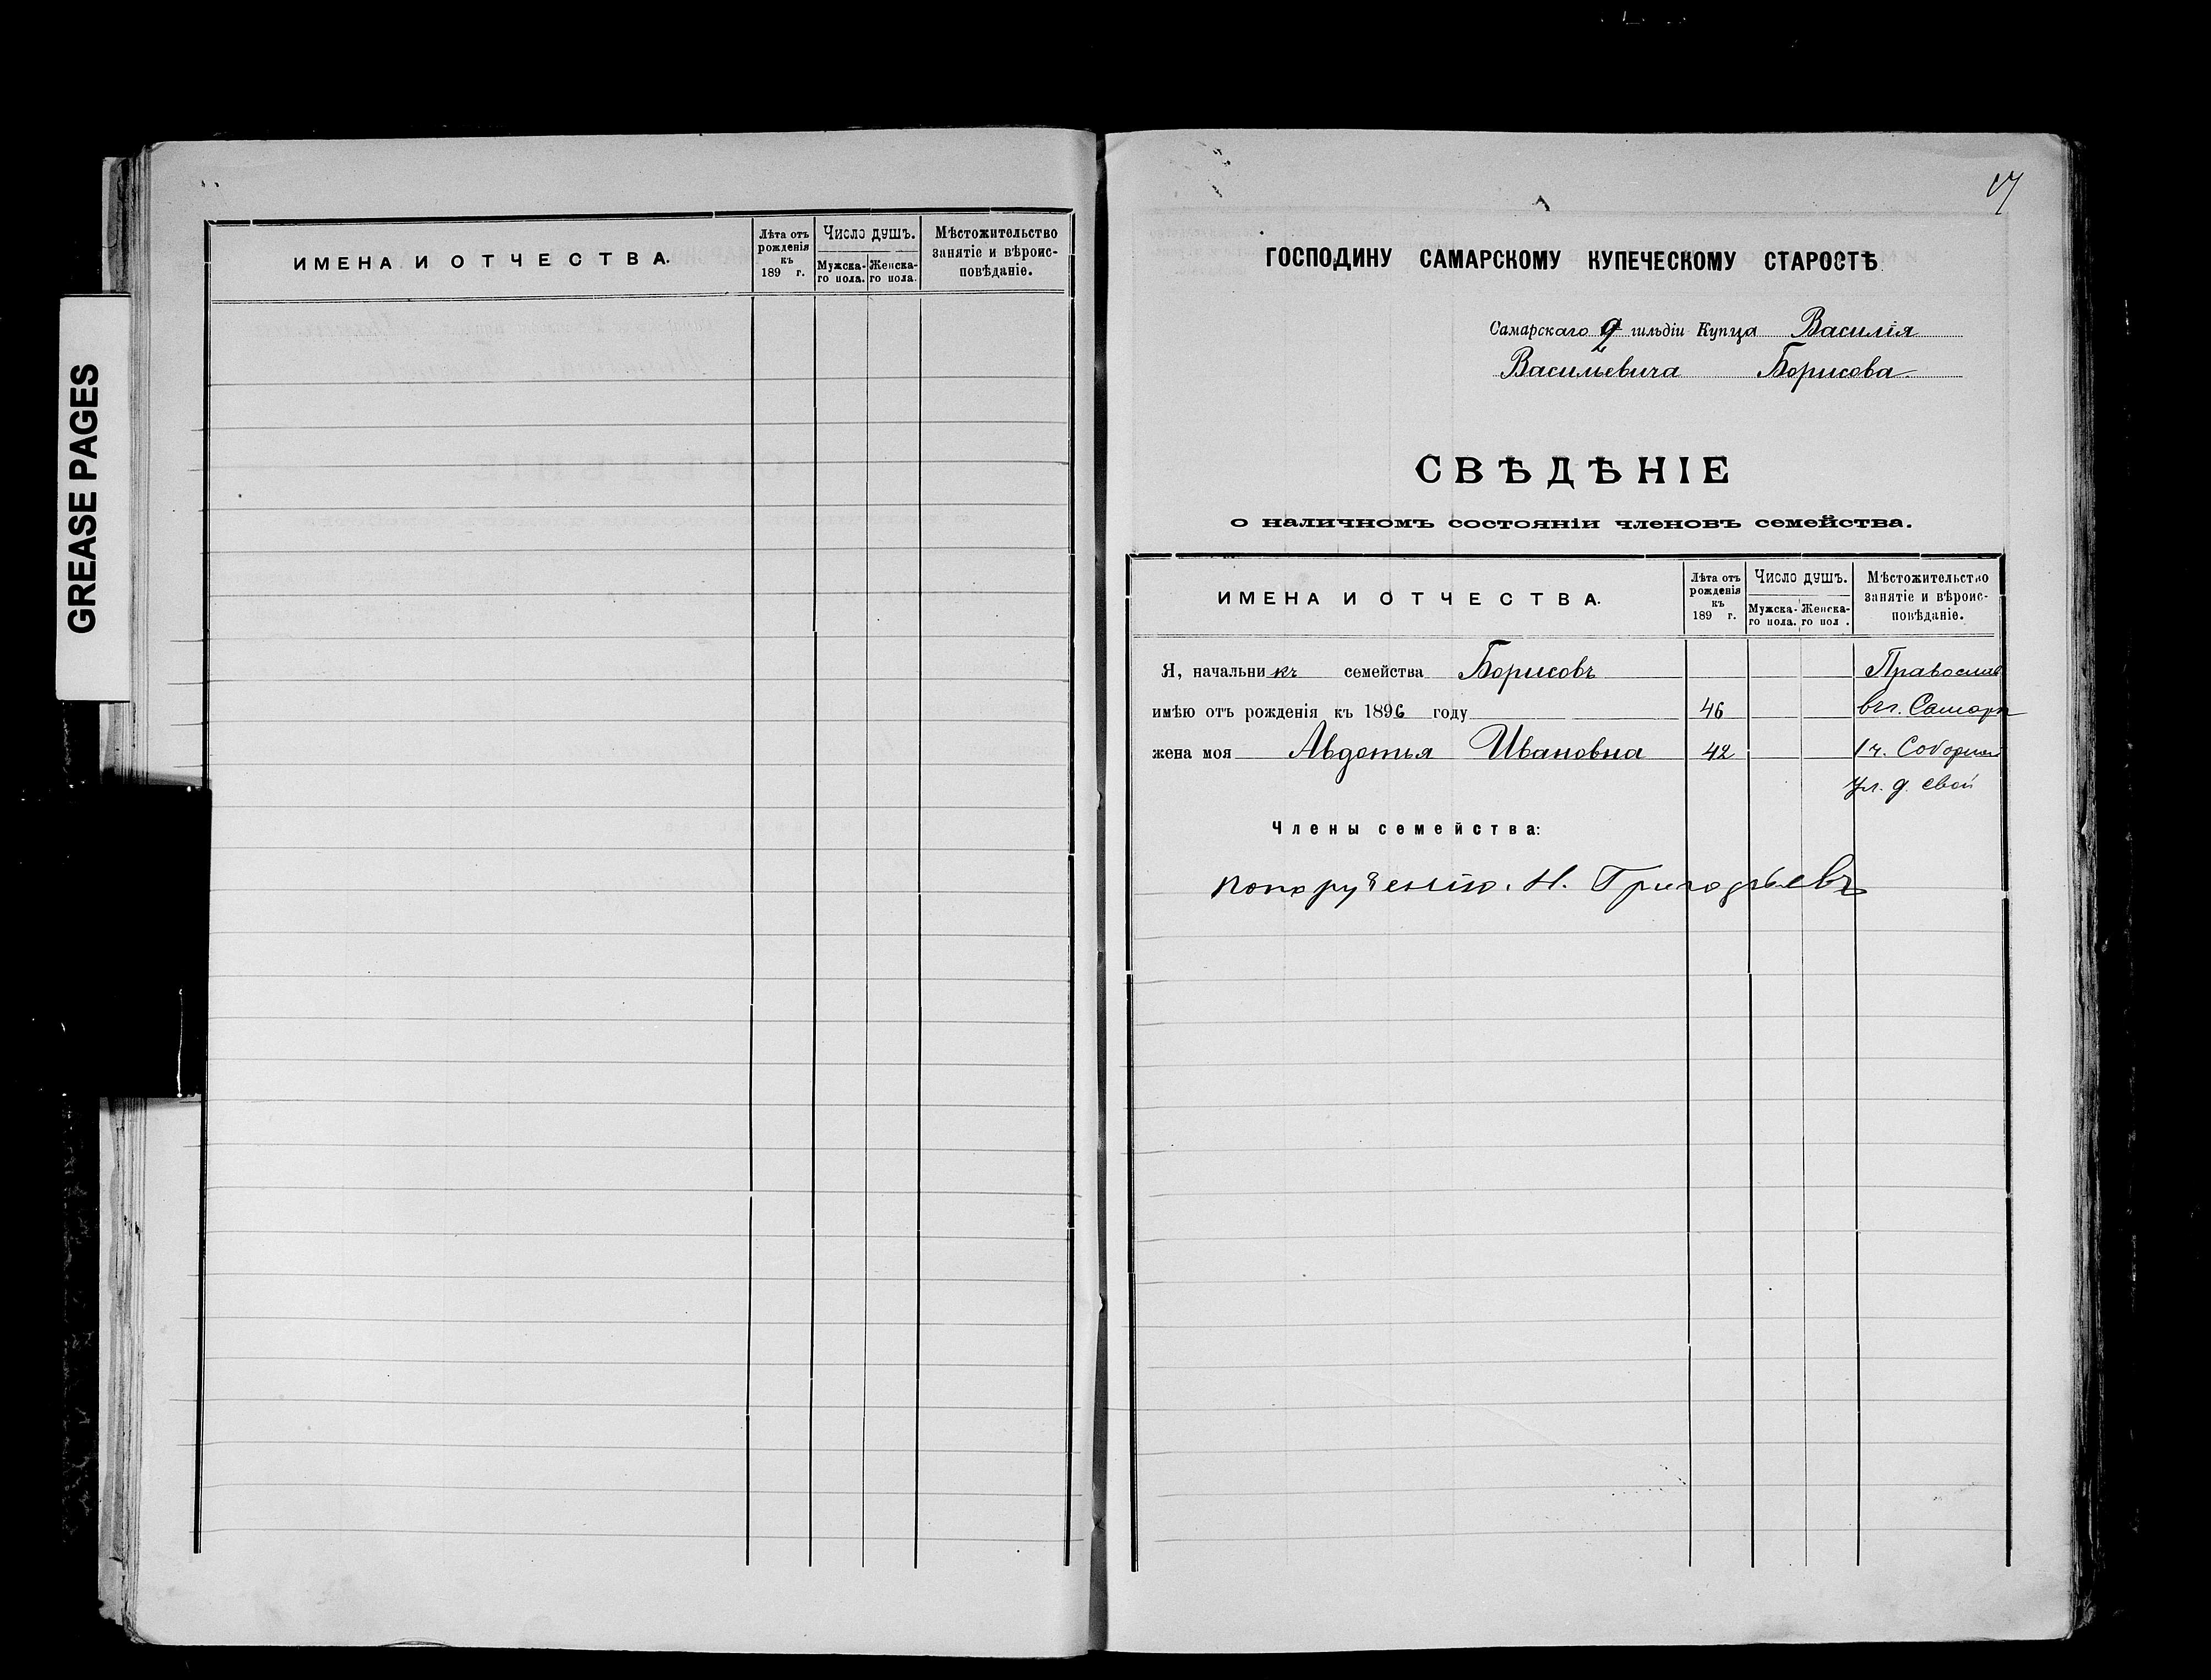 GREASE PAGES
ИМЕНА И ОТЧЕСТВА.
Лѣта отъ рожденія къ 189 г.
Число душъ.
Мужска-го пола.
Женска-го пола.
Мѣстожительство занятіе и вѣроис-повѣданіе.
17
ГОСПОДИНУ САМАРСКОМУ КУПЕЧЕСКОМУ СТАРОСТѢ
Самарскаго 2 гильдіи Купца Василія
Васильевича Борисова
СВѢДѢНІЕ
о наличномъ состояніи членовъ семейства.
ИМЕНА И ОТЧЕСТВА.
Лѣта отъ рожденія къ 189 г.
Число душъ.
Мужска-го пола.
Женска-го пол .
Мѣстожительство занятіе и вѣроис-повѣданіе.
Я, начальникъ семейства Борисовъ Православ
имѣю отъ рожденія къ 1896 году 46 въ г. Самарѣ
жена моя Авдотья Ивановна 42 1 ч. Соборная
ул. д. свой
Члены семейства:
по поручению. Н. Григорьевъ